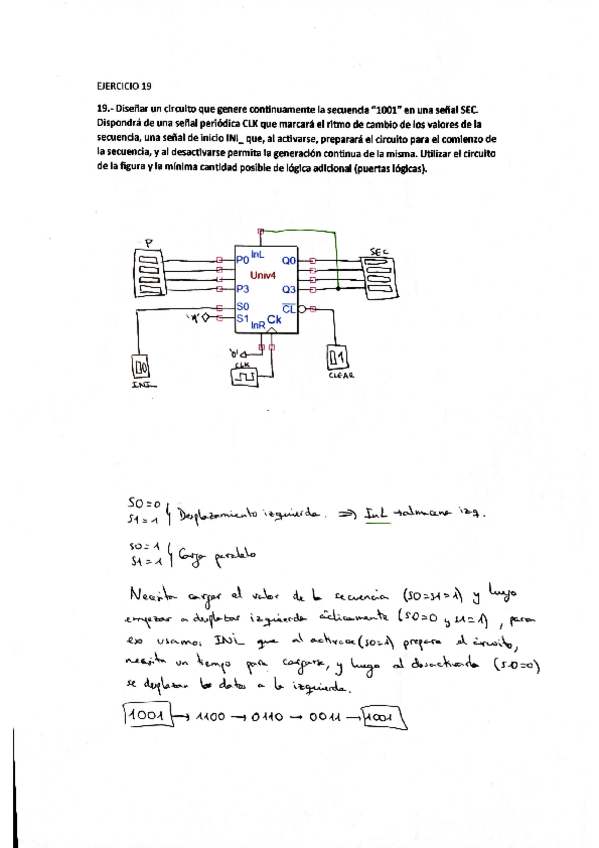 EJERCICIO 19
19.- Diseñar un circuito que genere continuamente la secuencia “1001” en una señal SEC.
Dispondrá de una señal periódica CLK que marcará el ritmo de cambio de los valores de la
secuencia, una señal de inicio INI_ que, al activarse, preparará el circuito para el comienzo de
la secuencia, y al desactivarse permita la generación continua de la misma. Utilizar el circuito
de la figura y la mínima cantidad posible de lógica adicional (puertas lógicas).
P
SEC
InL
P0 Q0
Univ4
P3 Q3
S0 CL
'1' S1 InR Ck
'0'
CLK
INI_
0
1
CLEAR
S0=0
S1=1 Desplazamiento izquierda. ⇒ InL → almacena izq.
S0=1
S1=1 Carga paralelo
Necesita cargar el valor de la secuencia (S0=S1=1) y luego
empezar a desplazar izquierda cíclicamente (S0=0 y S1=1), para
eso usamos INI_ que al activarse (S0=1) prepara el circuito,
necesita un tiempo para cargarse, y luego al desactivarla (S0=0)
se desplazan los datos a la izquierda.
1001 → 1100 → 0110 → 0011 → 1001